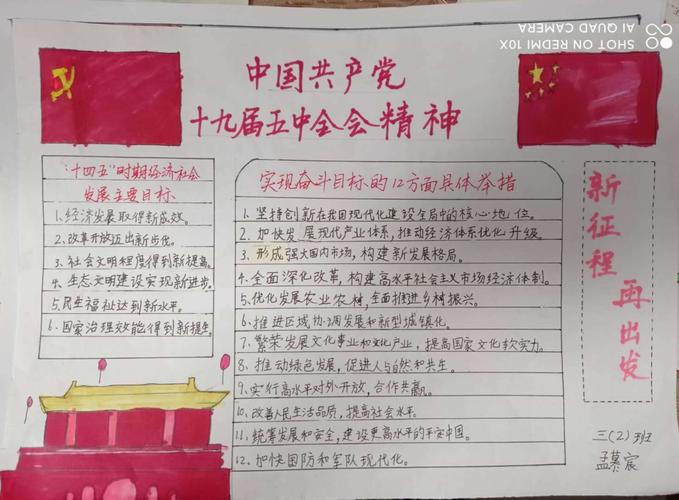 中国共产党
十九届五中全会精神
"十四五"时期经济社会
发展主要目标
1、经济发展取得新成效。
2、改革开放迈出新步伐。
3、社会文明程度得到新提高。
4、生态文明建设实现新进步。
5、民生福祉达到新水平。
6、国家治理效能得到新提生
实现奋斗目标的12方面具体举措
1、坚持创新在我国现代化建设全局中的核心地位。
2、加快发展现代产业体系，推动经济体系优化升级。
3、形成强大国内市场，构建新发展格局。
4、全面深化改革，构建高水平社会主义市场经济体制。
5、优化发展农业农村，全面推进乡村振兴。
6、推进区域协调发展和新型城镇化。
7、繁荣发展文化事业和文化产业，提高国家文化软实力。
8、推动绿色发展，促进人与自然和共生。
9、实行高水平对外开放，合作共赢。
10、改善人民生活品质，提高社会水平。
11、统筹发展和安全，建设更高水平的平安中国。
12、加快国防和军队现代化。
新征程
再出发
三(2)班
孟慕宸
SHOT ON REDMI 10X
AI QUAD CAMERA